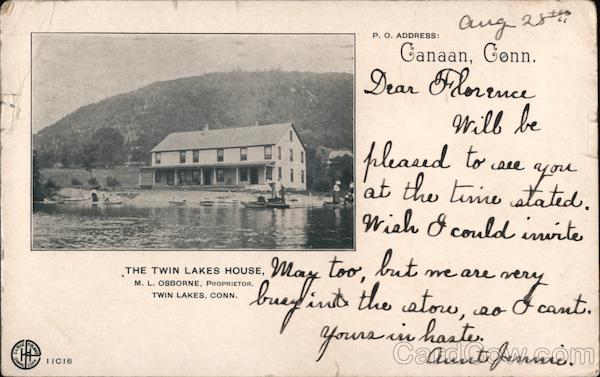 Aug 28th
P. O. ADDRESS:
Canaan, Conn.
Dear Florence
Will be
pleased to see you
at the time stated.
Wish I could invite
May too, but we are very
busy int the store, so I cant.
Yours in haste.
Aunt Jennie.
THE TWIN LAKES HOUSE,
M. L. OSBORNE, PROPRIETOR.
TWIN LAKES, CONN.
11C16
CardCow.com